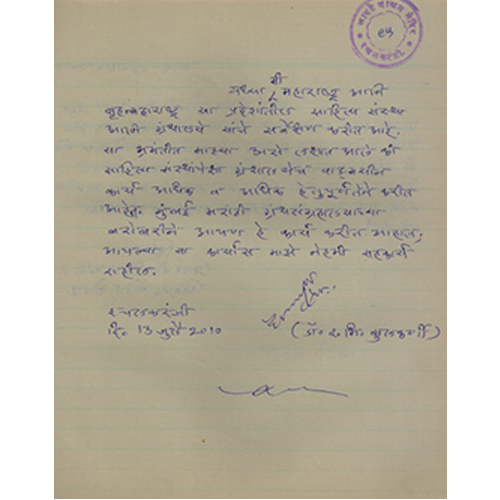 आपटे वाचन मंदिर
इचलकरंजी
मी
सध्या महाराष्ट्र आणि
बृहन्महाराष्ट्र या प्रदेशांतील साहित्य संस्था
आणि ग्रंथालये यांचे सर्वेक्षण करीत आहे.
या भ्रमंतीत माझ्या असे लक्षात आले की
साहित्य संस्थांपेक्षा ग्रंथालयेच वाङ्मयीन
कार्य अधिक व अधिक हेतुपूर्णतेने करीत
आहेत. मुंबई मराठी ग्रंथसंग्रहालयाच्या
बरोबरीने आपण हे कार्य करीत आहात,
आपल्या या कार्यास माझे नेहमी सहकार्य
राहील.
इचलकरंजी
दि. 13 जुलै 2010
(डॉ. द. भि. कुलकर्णी)